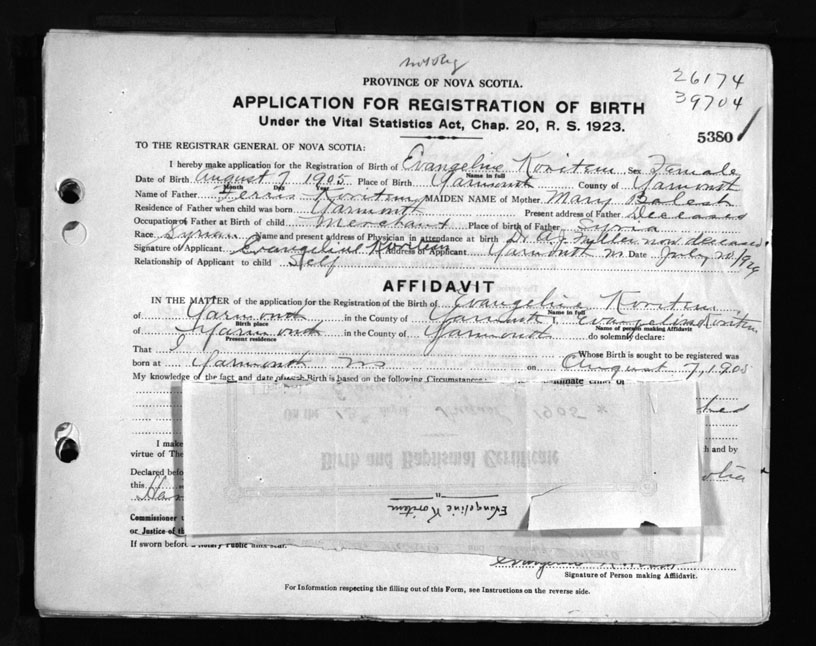 26174
39704
PROVINCE OF NOVA SCOTIA.
APPLICATION FOR REGISTRATION OF BIRTH
Under the Vital Statistics Act, Chap. 20, R. S. 1923.
5380
TO THE REGISTRAR GENERAL OF NOVA SCOTIA:
I hereby make application for the Registration of Birth of Evangeline Koritem Sex Female
Name in full
Date of Birth August 7 1905 Place of Birth Yarmouth County of Yarmouth
Month Day Year
Name of Father Koritem MAIDEN NAME of Mother Mary
Residence of Father when child was born Yarmouth Present address of Father Deceased
Occupation of Father at Birth of child Merchant Place of birth of Father Syria
Race Syrian Name and present address of Physician in attendance at birth Dr. now deceased
Signature of Applicant Evangeline Koritem Address of Applicant Yarmouth NS Date July 20/1929
Relationship of Applicant to child Self
AFFIDAVIT
IN THE MATTER of the application for the Registration of the Birth of Evangeline Koritem
Name in full
of Yarmouth in the County of Yarmouth I, Evangeline Koritem
Birth place Name of person making Affidavit
of Yarmouth in the County of Yarmouth do solemnly declare:
Present residence
That I Whose Birth is sought to be registered was
born at Yarmouth NS on August 7, 1905
My knowledge of the fact and date of such Birth is based on the following Circumstances:
On the 12 day August 1905
Birth and Baptismal Certificate
Evangeline Koritem
I make
virtue of The h and by
Declared befo
this
Commissioner
or Justice of th
If sworn before a Notary Public affix seal.
Signature of Person making Affidavit.
For Information respecting the filling out of this Form, see Instructions on the reverse side.